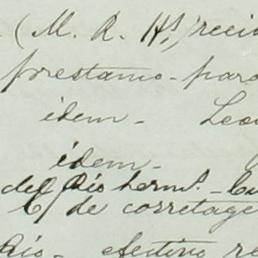 (M. R. Hs) reci
prestamo - para
idem - Leo
idem -
del Rio herms. - Cu
C/ de corretage
Rio - efectivo re